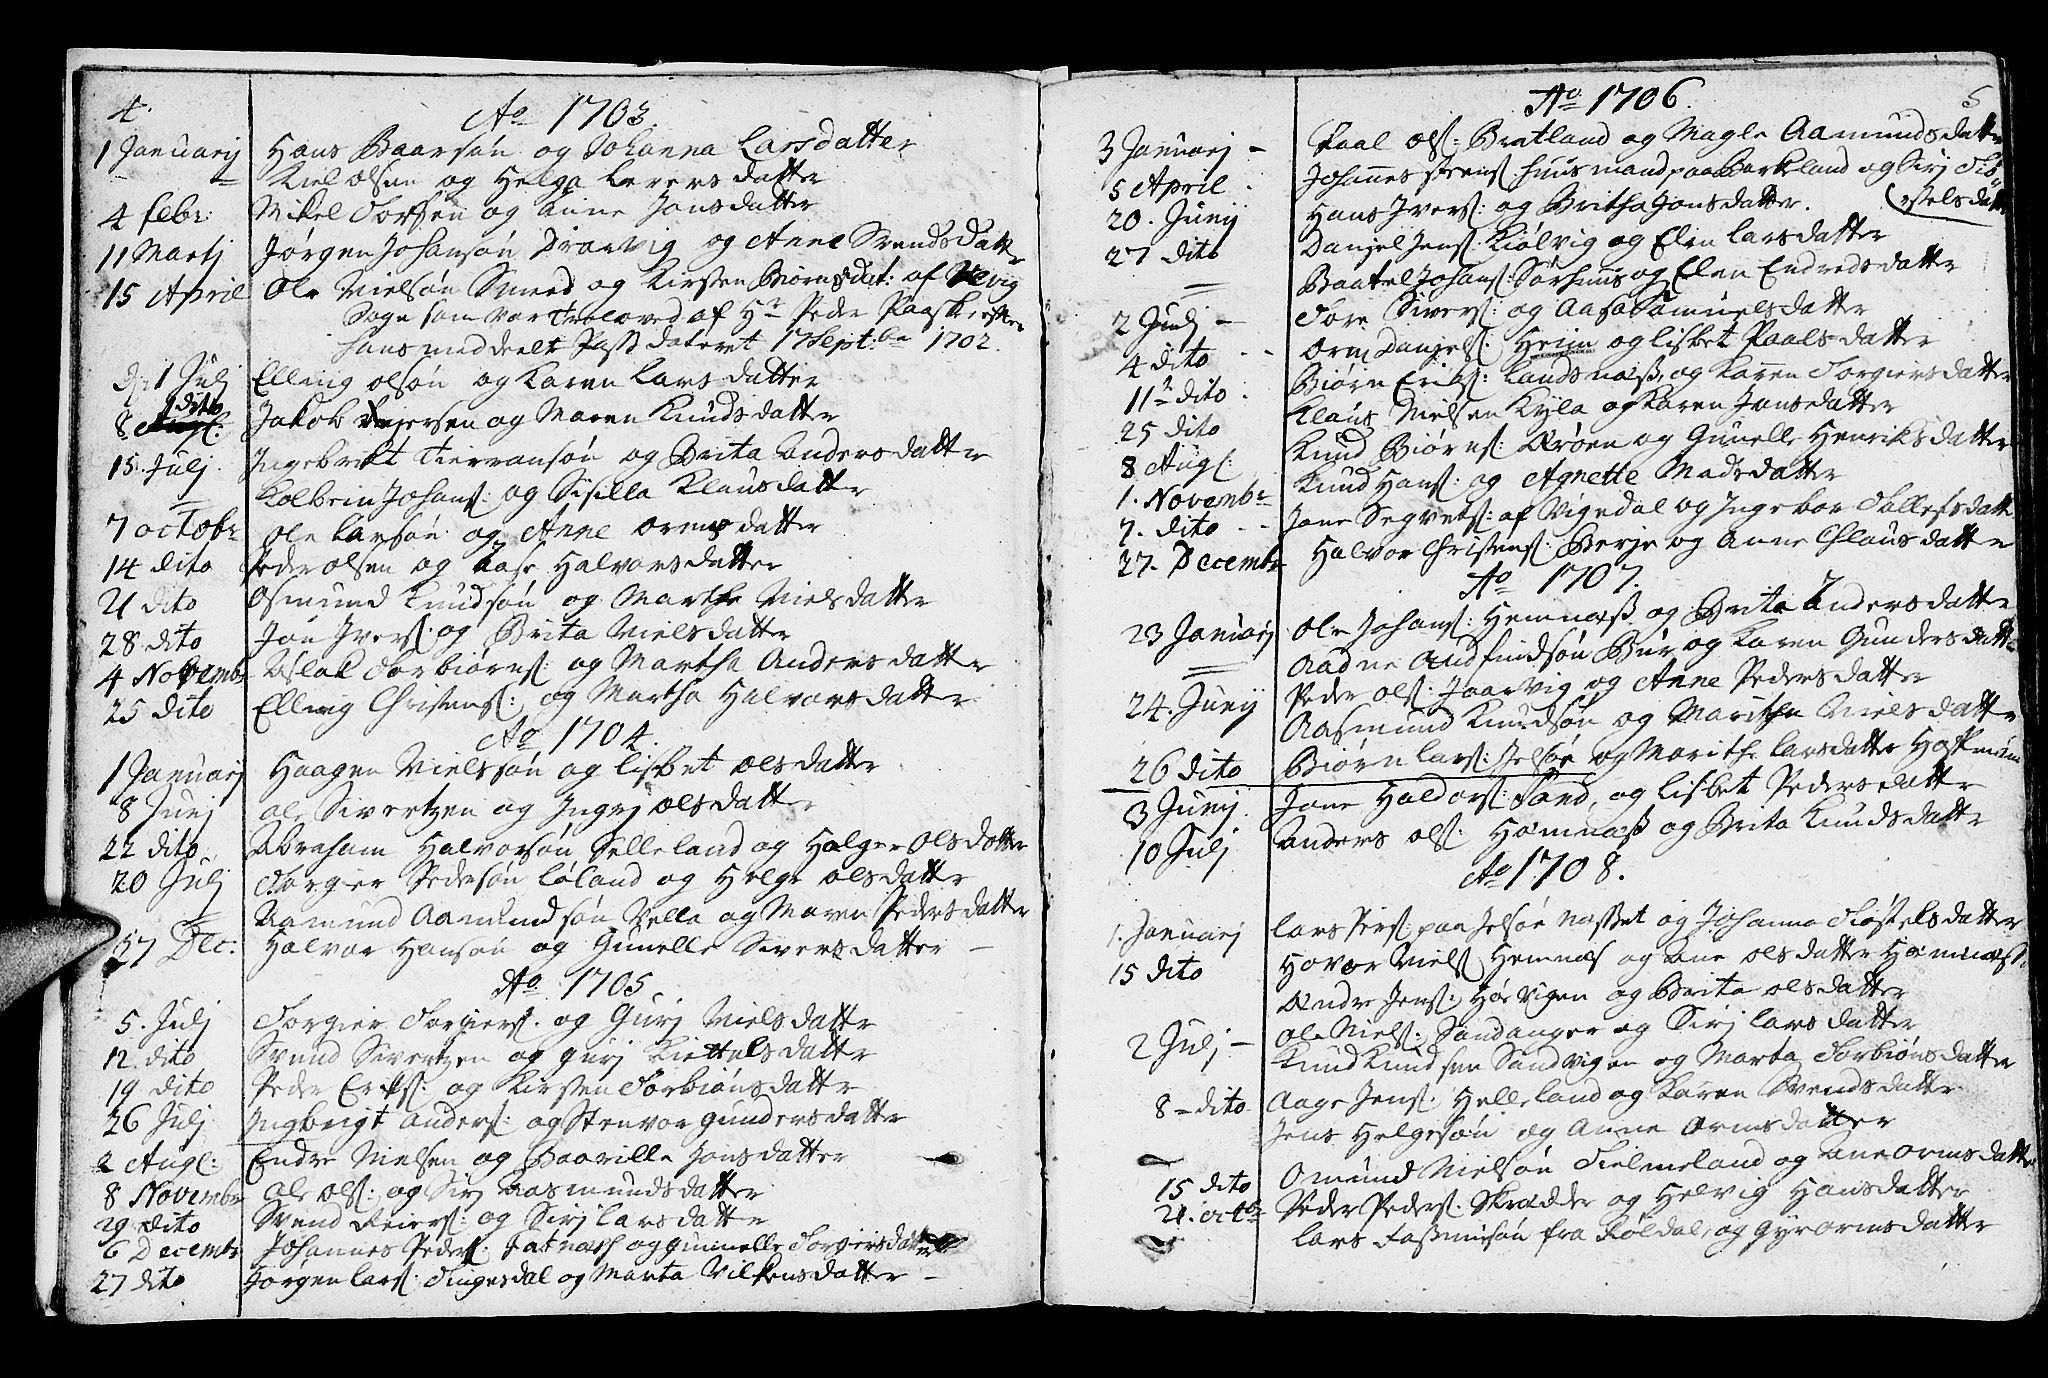 4.
Ao 1703.
1 Januarij Hans Baarsøn og Johanna Larsdatter
Kiel olsen og Helga Ivers datter
4 febr: Mikel Torsen og Anne Jonsdatter
11 Martj Jørgen Johansøn og Anne Svendsdatt
15 April Ole Nielsøn Smed og Kirsten Biørnsdat: af
Sogn som var troloved af Hr Peder
hans meddeelt Pass dateret 17 Septbr 1702.
1 Julj Elling olsøn og Karen Lars datter
8 dito Jakob Iversen og Maren Knudsdatter
15. Julj Ingebrekt og Brita Anders datter
Kolbein Johans: og Sisilla Klausdatter
7 octobr Ole Larsøn og Anne orms datter
14 dito Peder olsen og Aase Halvorsdatter
21 dito Osmund Knudsøn og Marthe Niels datter
28 dito Jon Ivers: og Brita Nielsdatter
4 Novembr Aslak Torbiørns: og Martha Anders datter
25 dito Elling Christens: og Martha Halvors datter
Ao 1704.
1 Januarj Haagen Nielssøn og lisbet olsdatter
8 Junj ole Sivertzen og Ingrj olsdatter
22 dito Abraham Halvorsøn Selleland og Holger Olsdotter
20 Julj Torgier Pedersøn Løland og Helge olsdatter
Aamund Aamundsøn Vella og Maren Peders datter
Dec: Halvor Hanson og Gunelle Sivers datter
Ao 1705
5. Julj Torgier Torgiers: og Gurj Niels datter
12. dito Svend Sivertzen og gurj Kiettels datter
19 dito Peder Eriks: og Kirsten Torbiøns datter
26 Julj Ingbrigt anders: og Stenvor gunders datter
2 Augl: Endre Nielsen og Baarille Jonsdatter
8 Novembr ole ols: og Sirj Aasmundsdatter
29 dito Svend Reiers: og Sirj lars datter
6 Decembr Johannes Peders: og gunnelle Torgiersdatter
27 dito Jørgen lars: Tingesdal og Marta Vilkensdatter
5
Ao 1706.
3 Januarj Paal ols: Bratland og Magle Aamundsdatter
5 April Johannes steens: huusmand paa Barkland og Sirj Tiø
stelsdatt
20. Junij Hans Ivers: og Britha Jonsdatter.
27 dito Danjel Jens: Kiølvig og Elen lars datter
Baatel Johans: Sørhuus og Elen Endreds datter
2 Julj Tore Sivers: og Aasa Samuelsdatter
4 dito Orm Danjels: Heim og lisket Paals datter
11te dito Biørn Eriks: landsnæss, og Karen Torgiersdatter
25 dito Klaus Nielsen Kyla og Karen Jonsdatter
8 Augl: Knud Biørns: Ærøen og Gunelle Henriksdatter
1. Novembr Knud Hans: og Agnette Madsdatter
7. dito Jone Segvets: af Vigedal og Ingebor Tollefsdatt
27. Decembr Halvor Christens: Berje og Anne Clausdatter
Ao 1707.
23 Januarj Ole Johans: Hemnæss og Brita Andersdatter
Aadne Audfindsøn Bur og Karen Gunders datt
24. Junij Peder ols: Jaarvig og Anne Peders datter
Aasmund Knudsøn og Marithe Niels datter
26 dito Biørn lars: Jelsøe og Marithe larsdatter
3 Junij Jone Haldors: Sand, og lisbet Peders datter
10 Julj Anders ols: Hæmnæss og Brita Knuds datter
Ao 1708.
1. Januarj lars Pers: paa Jelsøe næsset og Johanna Tiøstelsdatter
15 dito Hovor Niels: Hemnæs og Ane ols datter Hæmnæs:
Andre Jens: Høevigen og Brita olsdatter
2 Julj ole Niels: Sandanger og Sirj lars datter
Knud Knudsen Sandvigen og Marta Torbiønsdatter
8 dito Aage Jens: Helleland og Karen Svendsdatter
Jens Helgesøn og Anne Ormsdatter
15 dito Omund Nielsøn Tielmeland og Ane orms datter
21. octo Peder Peders: Skrædder og Helvig Hansdatter
lars fra Røldal, og Gyro ormsdatter